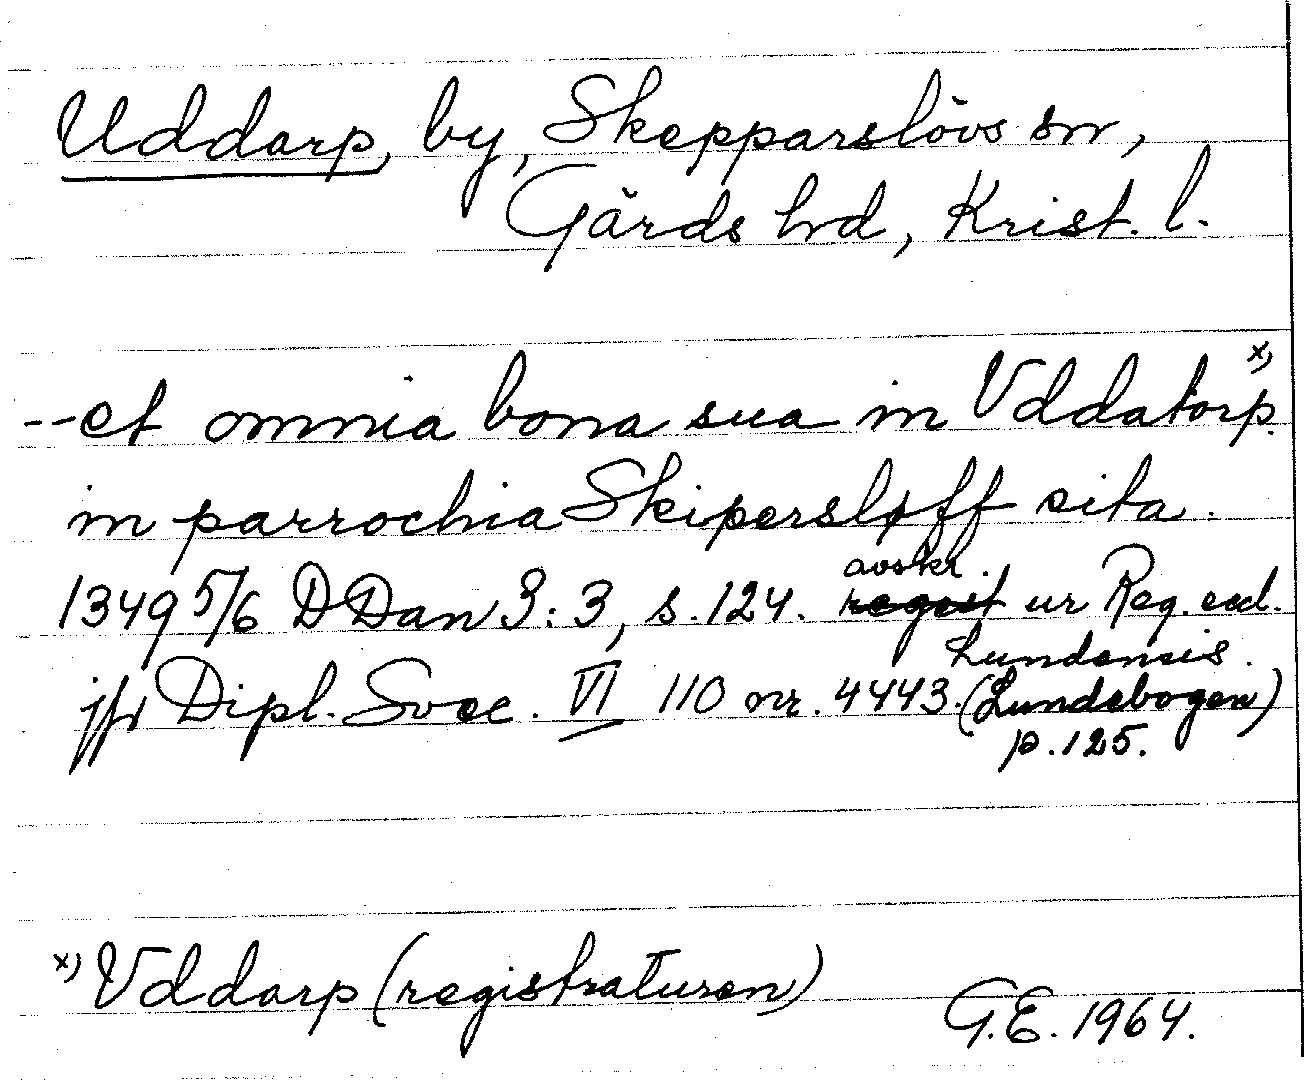 Uddarp, by, Skepparslövs sn,
Gärds hd, Krist. l.
x)
--et omnia bona sua in Vddatorp.
in parrochia Skipersløff sita.
avskr.
1349 5/6 DDan 3:3, s. 124. regest ur Reg. eccl.
Lundensis.
jfr Dipl. Svec. VI 110 nr. 4443. (Lundebogen)
p. 125.
x) Vddarp (registraturen)
G.E. 1964.